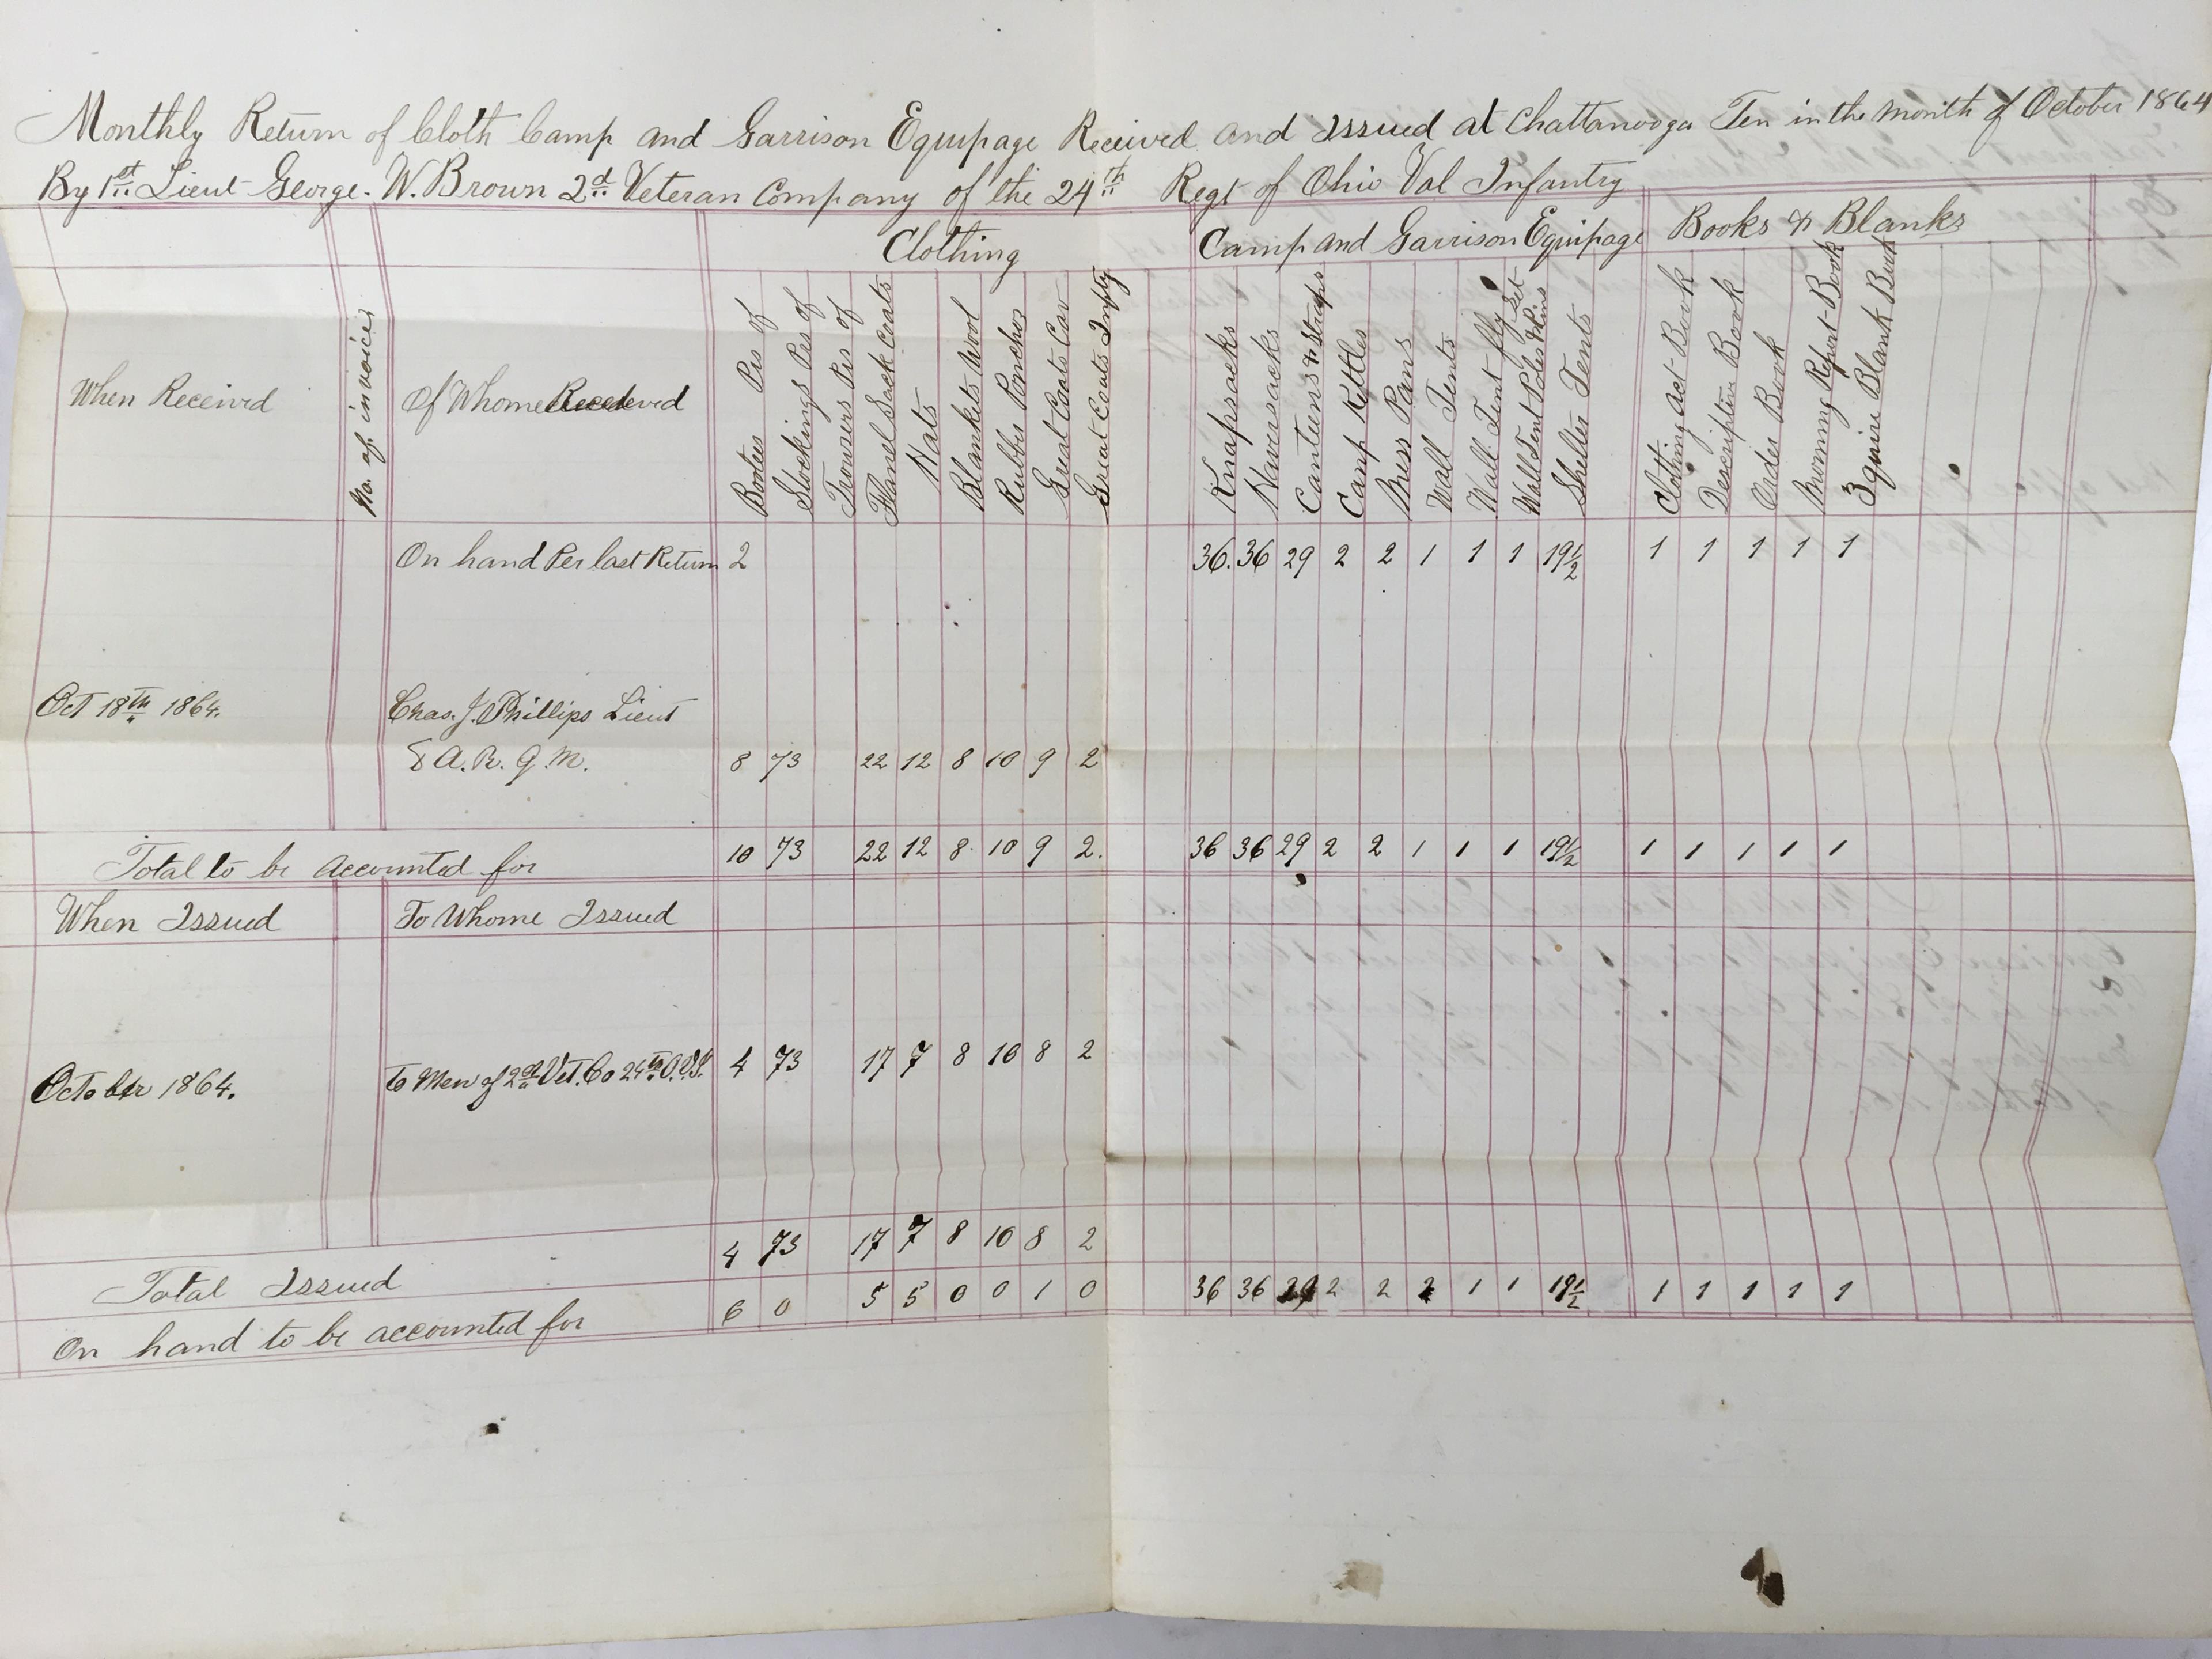 Monthly Return of Cloth Camp and Garrison Equipage Received and Issued at Chattanooga Ten in the month of October 1864
By 1st Lieut George. W. Brown 2d Veteran Company of the 24th Regt of Ohio Vol Infantry
Clothing Camp and Garrison Equipage Books & Blanks
When Received No. of invoices Of Whome Received Bootees Prs of Stockings Prs of Trousers Prs of Flanel Sack Coats Hats Blankets Wool Rubber Ponchos Great Coats Cav Great Coats Infty Knapsacks Haversacks Canteens & Straps Camp Kettles Mess Pans Wall Tents Wall Tent fly Wall Tent Poles & Pins set Shelter Tents Clothing Act Book Descriptive Book Order Book Morning Report Book 3 quire Blank Book
On hand Per last Return 2 36. 36 29 2 2 1 1 1 19½ 1 1 1 1 1
Oct 18th 1864. Chas. J. Phillips Lieut
& A. R. Q. M. 8 73 22 12 8 10 9 2
Total to be accounted for 10 73 22 12 8. 10 9 2. 36 36 29 2 2 1 1 1 19½ 1 1 1 1 1
When Issued To Whome Issued
October 1864. To Men of 2d Vet. Co 24th O.V.I. 4 73 17 7 8 10 8 2
Total Issued 4 73 17 7 8 10 8 2
On hand to be accounted for 6 0 5 5 0 0 1 0 36 36 29 2 2 1 1 19½ 1 1 1 1 1